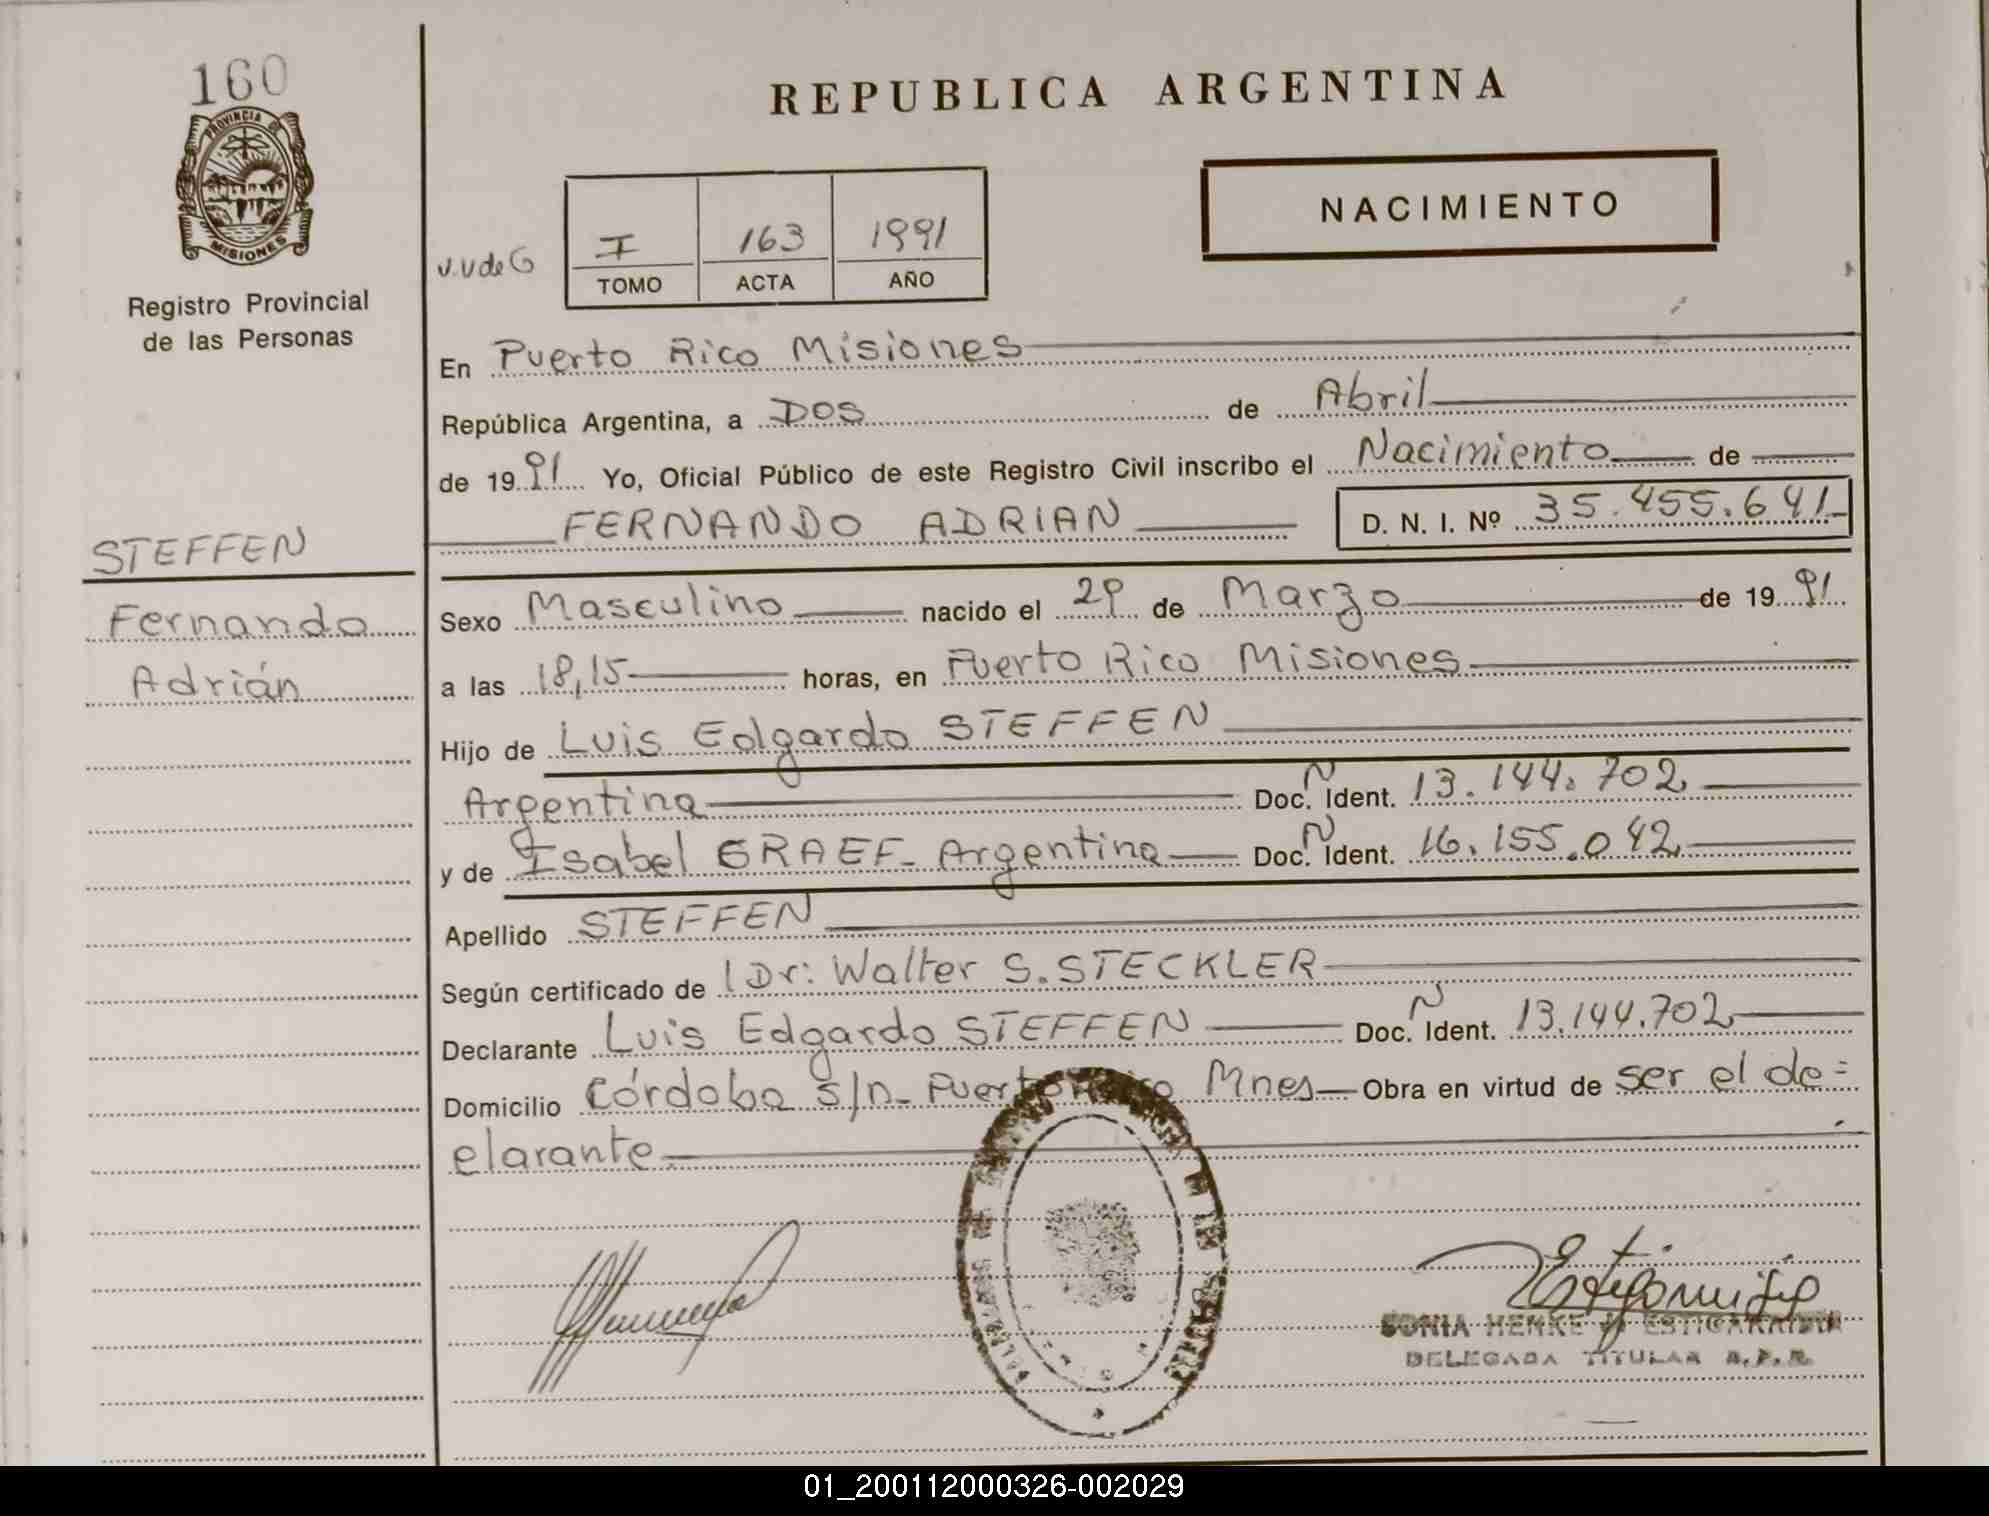 160
PROVINCIA DE
MISIONES
Registro Provincial
de las Personas
STEFFEN
Fernando
Adrián
REPUBLICA ARGENTINA
NACIMIENTO
v.v de G
I 163 1991
TOMO ACTA AÑO
En Puerto Rico Misiones
República Argentina, a Dos de Abril
de 1991 Yo, Oficial Público de este Registro Civil inscribo el Nacimiento de
FERNANDO ADRIAN D. N. I. Nº 35.455.641
Sexo Masculino nacido el 29 de Marzo de 1991
a las 18,15 horas, en Puerto Rico Misiones
Hijo de Luis Edgardo STEFFEN
Argentina Doc. N Ident. 13.144.702
y de Isabel GRAEF- Argentina Doc. N Ident. 16.155.042
Apellido STEFFEN
Según certificado de Dr: Walter S. STECKLER
Declarante Luis Edgardo STEFFEN Doc. N Ident. 13.144.702
Domicilio Córdoba s/n- Puerto Rico Mnes Obra en virtud de ser el de=
clarante.
SONIA HENKE ESTIGARRIBIA
DELEGADA TITULAR R.P.P.
01_200112000326-002029